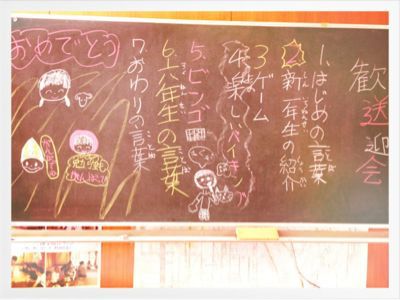 歓送迎会
1.はじめの言葉
2.新一年生の紹介
3ゲーム
4.楽しいバイキング
5.ビンゴ
6.六年生の言葉
7.おわりの言葉
おめでとう
勉強